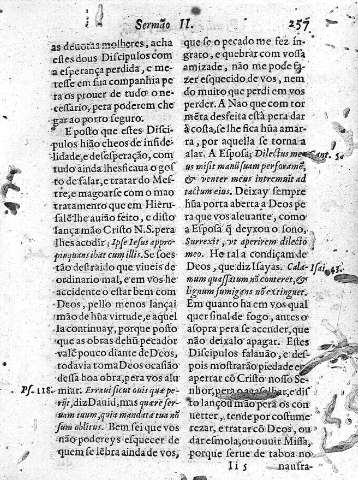 Sermão II. 257
as deuotas molheres, acha
estes dous Discipulos com
a esperança perdida, e me-
tesse em sua companhia pe
ra os prouer de tudo o ne-
cessario, pera poderem che
gar ao porto seguro.
E posto que estes Disci-
pulos hião cheos de infide-
lidade, e desesperação, com
tudo ainda lhes ficaua o gos-
to de falar, e tratar do Mes-
tre, e magoarse com o mao
tratamento que em Hieru-
salẽ lhe auiño feito, e disto
lança mão Cristo N.S. pera
lhes acodir; Ipse Iesus appro-
pinquans ibat cum illis. Se soes
tão destraido que viueis de
ordinario mal, e em vos he
accidente o estar bem com
Deos, pello menos lançai
mão de hũa virtude, e aquel
la continuay, porque posto
que as obras dehũ pecador
valẽ pouco diante de Deos,
todavia toma Deos ocasião
dessa boa obra, pera vos alu
Ps. 118. miar. Erraui sicut ouis que pe-
rijt, diz Dauid, mas quære ser-
uum tuum, quia mandata tua nõ
sum oblitus. Bem sei que vos
não podereys esquecer de
quem se lẽbra ainda de vos,
que se o pecado me fez in-
grato, e quebrar com vossa
amizade, não me pode fa-
zer esquecido de vos, nem
do muito que perdi em vos
perder. A Nao que com tor
mẽta desfeita está pera dar
à costa, se lhe fica hũa amar-
ra, por aquella se torna a
alar. A Esposa; Dilectus me- Cant. 5.
us misit manũ suam per foramẽ,
& venter meus intremuit ad
tactum eius. Deixay sempre
hũa porta aberta a Deos pe
ra que vos aleuante, como
a Esposa q̃ deyxou o sono.
Surrexit, vt aperirem dilecto
meo. He ral a condiçam de
Deos, que diz Isayas. Cala- Isai. 43.
mum quassatum nõ conteret, &
lignum fumigans nõ extinguet.
Em quanto ha em vos qual
quer sinal de fogo, antes o
asopra pera se acender, que
não deixalo apagar. Estes
Discipulos falauão, e des-
pois mostrarão piedade e
apertar cõ Cristo nosso Se-
nhor, pera agasalhar, e dis-
to lançou mão pera os con
uerter, tende por costume
rezar, e tratar cõ Deos, ou
dar esmola, ou ouuir Missa,
porque serue de taboa no
Ii 5 naufra-